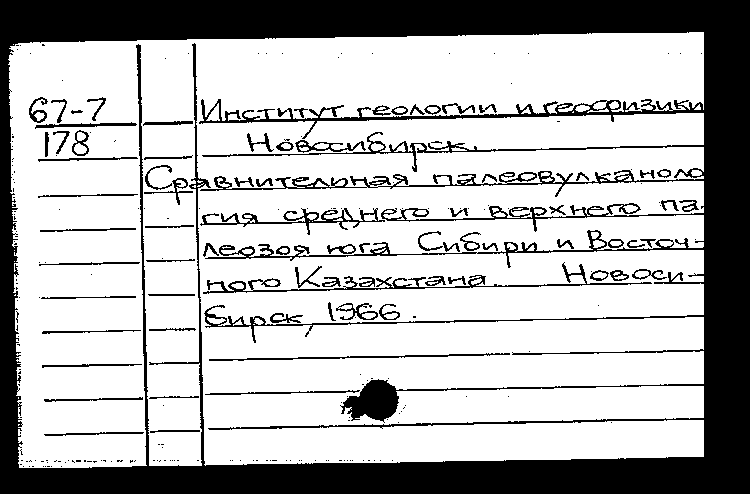 67-7 Институт геологии и геофизики
178 Новосибирск.
Сравнительная палеовулканоло
гия среднего и верхнего па-
леозоя юга Сибири и Восточ-
ного Казахстана. Новоси-
бирск, 1966.